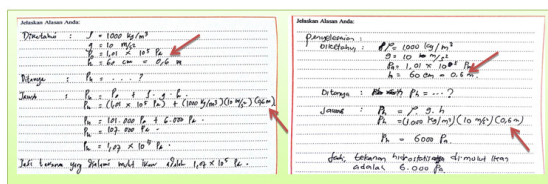 Jelaskan Alasan Anda:
Diketahui : ρ = 1000 kg/m³
g = 10 m/s²
P₀ = 1,01 × 10⁵ Pa
h = 60 cm = 0,6 m
Ditanya : Ph = . . . . ?
Jawab : Ph = P₀ + ρ . g . h.
Ph = (1,01 × 10⁵ Pa) + (1000 kg/m³)(10 m/s²)(0,6 m)
Ph = 101.000 Pa + 6.000 Pa.
Ph = 107.000 Pa.
Ph = 1,07 × 10⁵ Pa.
Jadi tekanan yang dialami mulut ikan adalah 1,07 × 10⁵ Pa.
Jelaskan Alasan Anda:
Penyelesaian :
Diketahui : ρ = 1000 kg/m³
g = 10 m/s²
P₀ = 1,01 × 10⁵ Pa
h = 60 cm = 0.6 m
Ditanya : Ph = ... ?
Jawab : Ph = ρ. g. h
Ph = (1000 kg/m³)(10 m/s²)(0,6 m)
Ph = 6000 Pa.
Jadi, tekanan hidrostatis di mulut ikan
adalah 6.000 Pa.